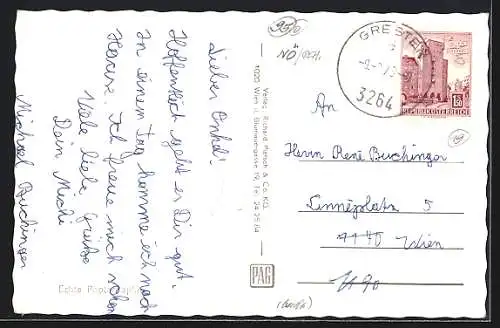 Lieber Onkel!
Hoffentlich geht es Dir gut.
In einem Tag komme ich nach
Hause. Ich freue mich schon
Viele liebe Grüße
Dein Michi
Michael Buchinger
Echte Photographie
Verlag Richard Pietsch & Co. KG.
1020 Wien II, Blumauergasse 19, Tel. 24 25 74
PAG
NÖ
GRESTEN
3264
REPUBLIK ÖSTERREICH
An
Herrn René Buchinger
Linnéplatz 5
1140 Wien
1190